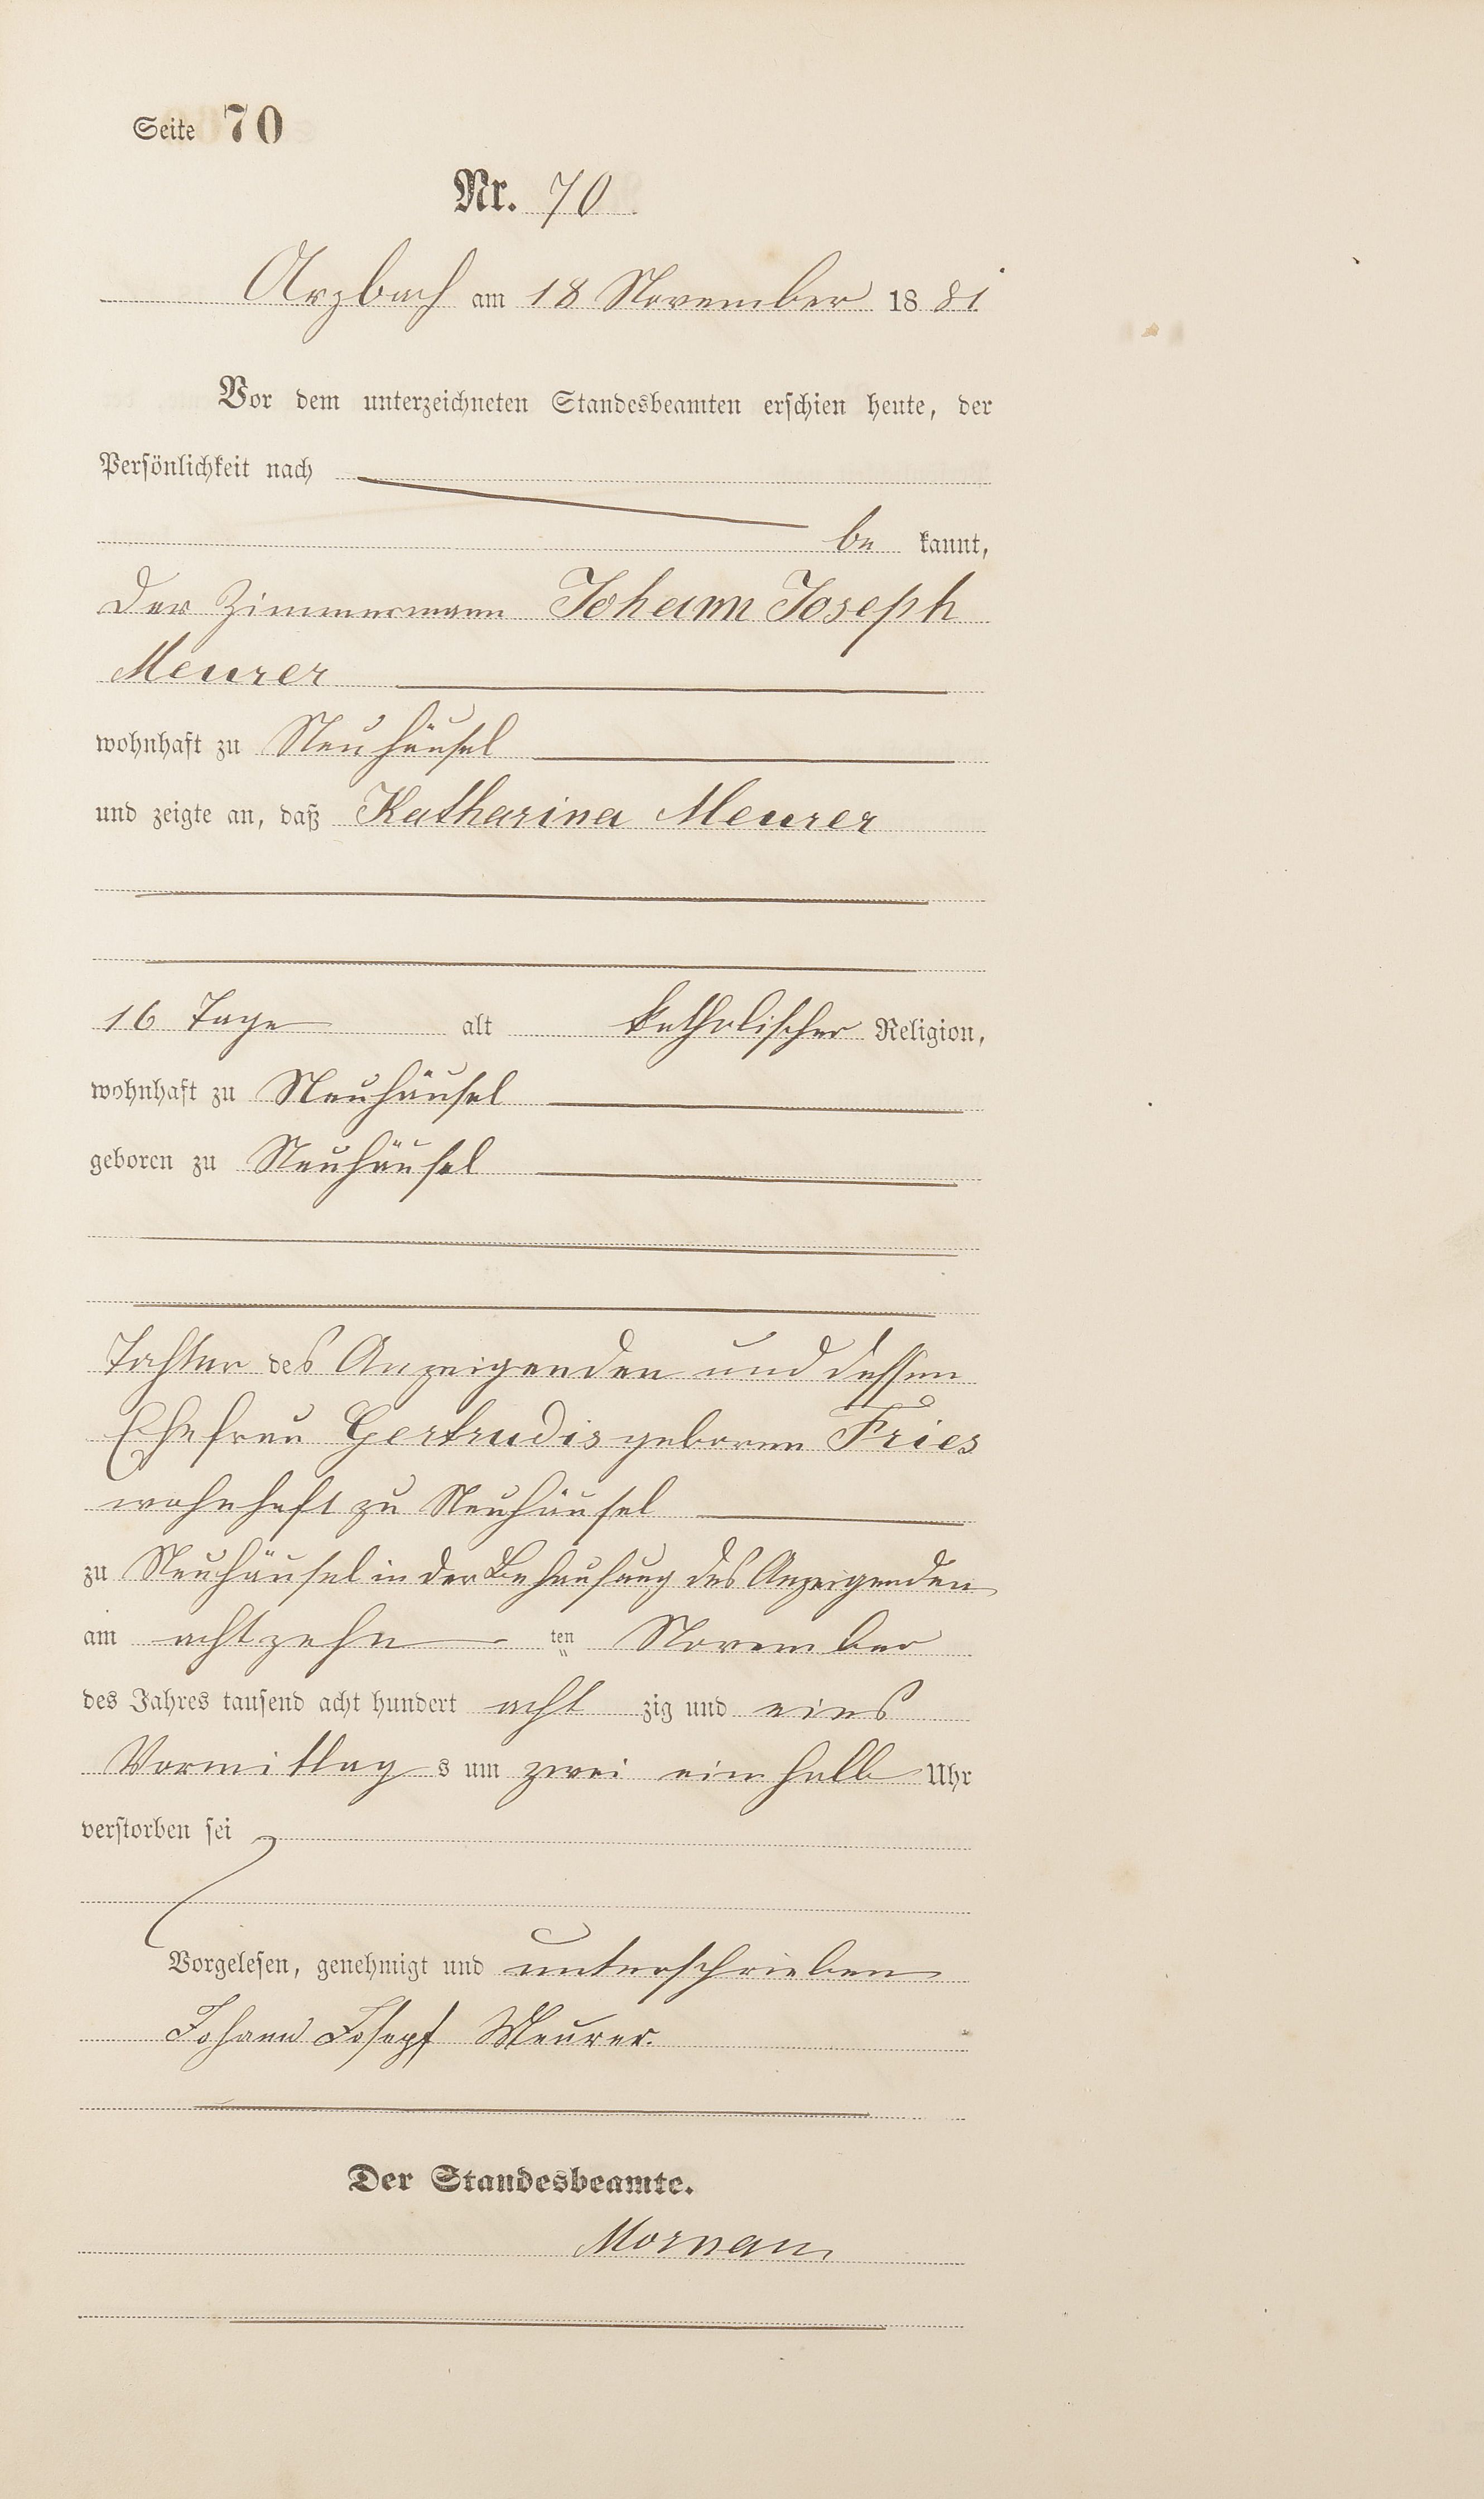 Seite 70
Nr. 70
Arzbach am 18 November 1881
Vor dem unterzeichneten Standesbeamten erschien heute, der
Persönlichkeit nach
be kannt,
der Zimmermann Johann Joseph
Meurer
wohnhaft zu Neuhäusel
und zeigte an, daß Katharina Meurer
16 Tage alt katholischer Religion,
wohnhaft zu Neuhäusel
geboren zu Neuhäusel
Tochter des Anzeigenden und dessen
Ehefrau Gertrudis geborene Fries
wohnhaft zu Neuhäusel
zu Neuhäusel in der Behausung des Anzeigenden
am achtzehn ten November
des Jahres tausend acht hundert acht zig und eins
Vormittag s um zwei ein halb Uhr
verstorben sei
Vorgelesen, genehmigt und unterschrieben
Johann Josepf Meurer.
Der Standesbeamte.